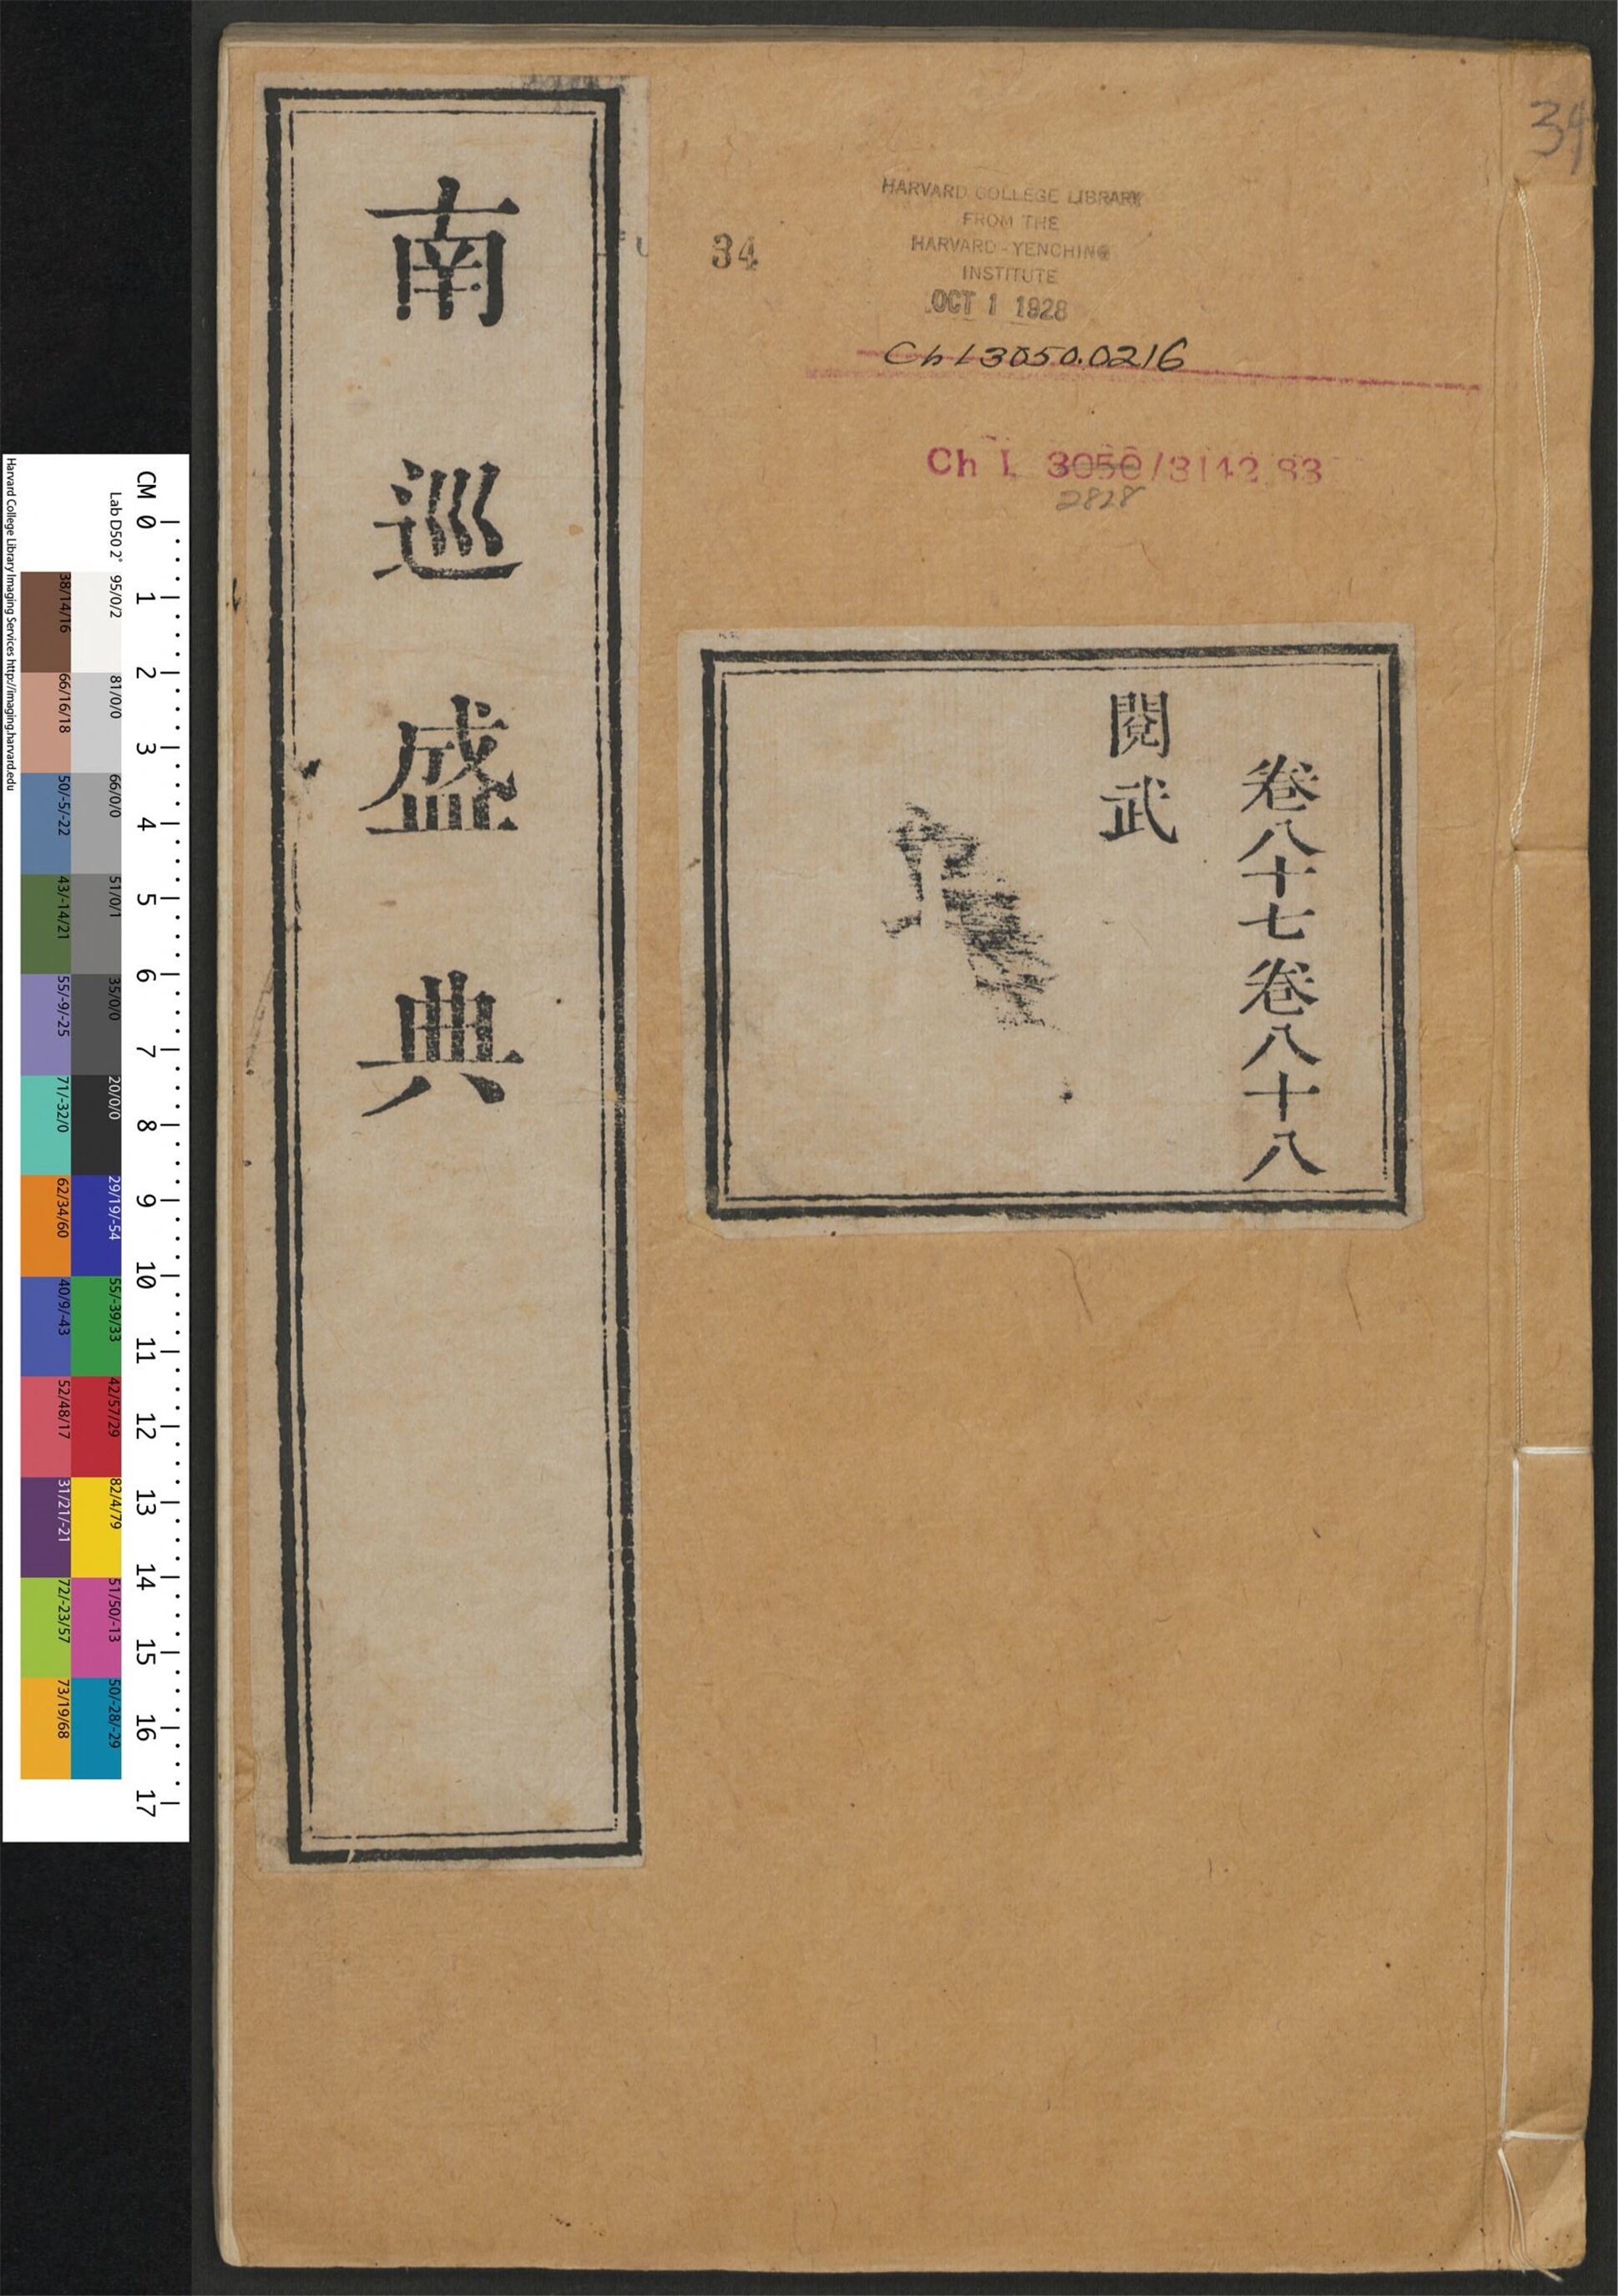 南巡盛典
34
HARVARD COLLEGE LIBRARY
FROM THE
HARVARD-YENCHING
INSTITUTE
OCT 1 1928
Ch L 3050.0216
Ch L 3050/3142.83
2828
34
卷八十七卷八十八
閱武
CM 0 1 2 3 4 5 6 7 8 9 10 11 12 13 14 15 16 17
Lab D50 2° 95/0/2 81/0/0 66/0/0 51/0/1 35/0/0 20/0/0 29/19/-54 55/-39/33 42/57/29 82/4/79 51/50/-13 50/-28/-29
38/14/16 66/16/18 50/-5/-22 43/-14/21 55/-9/-25 71/-32/0 62/34/60 40/9/-43 52/48/17 31/21/-21 72/-23/57 73/19/68
Harvard College Library Imaging Services http://imaging.harvard.edu